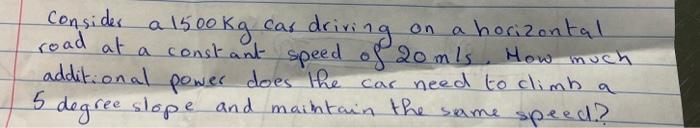 Consider a 1500kg car driving on a horizontal
road at a constant speed of 20 m/s. How much
additional power does the car need to climb a
5 degree slope and maintain the same speed?